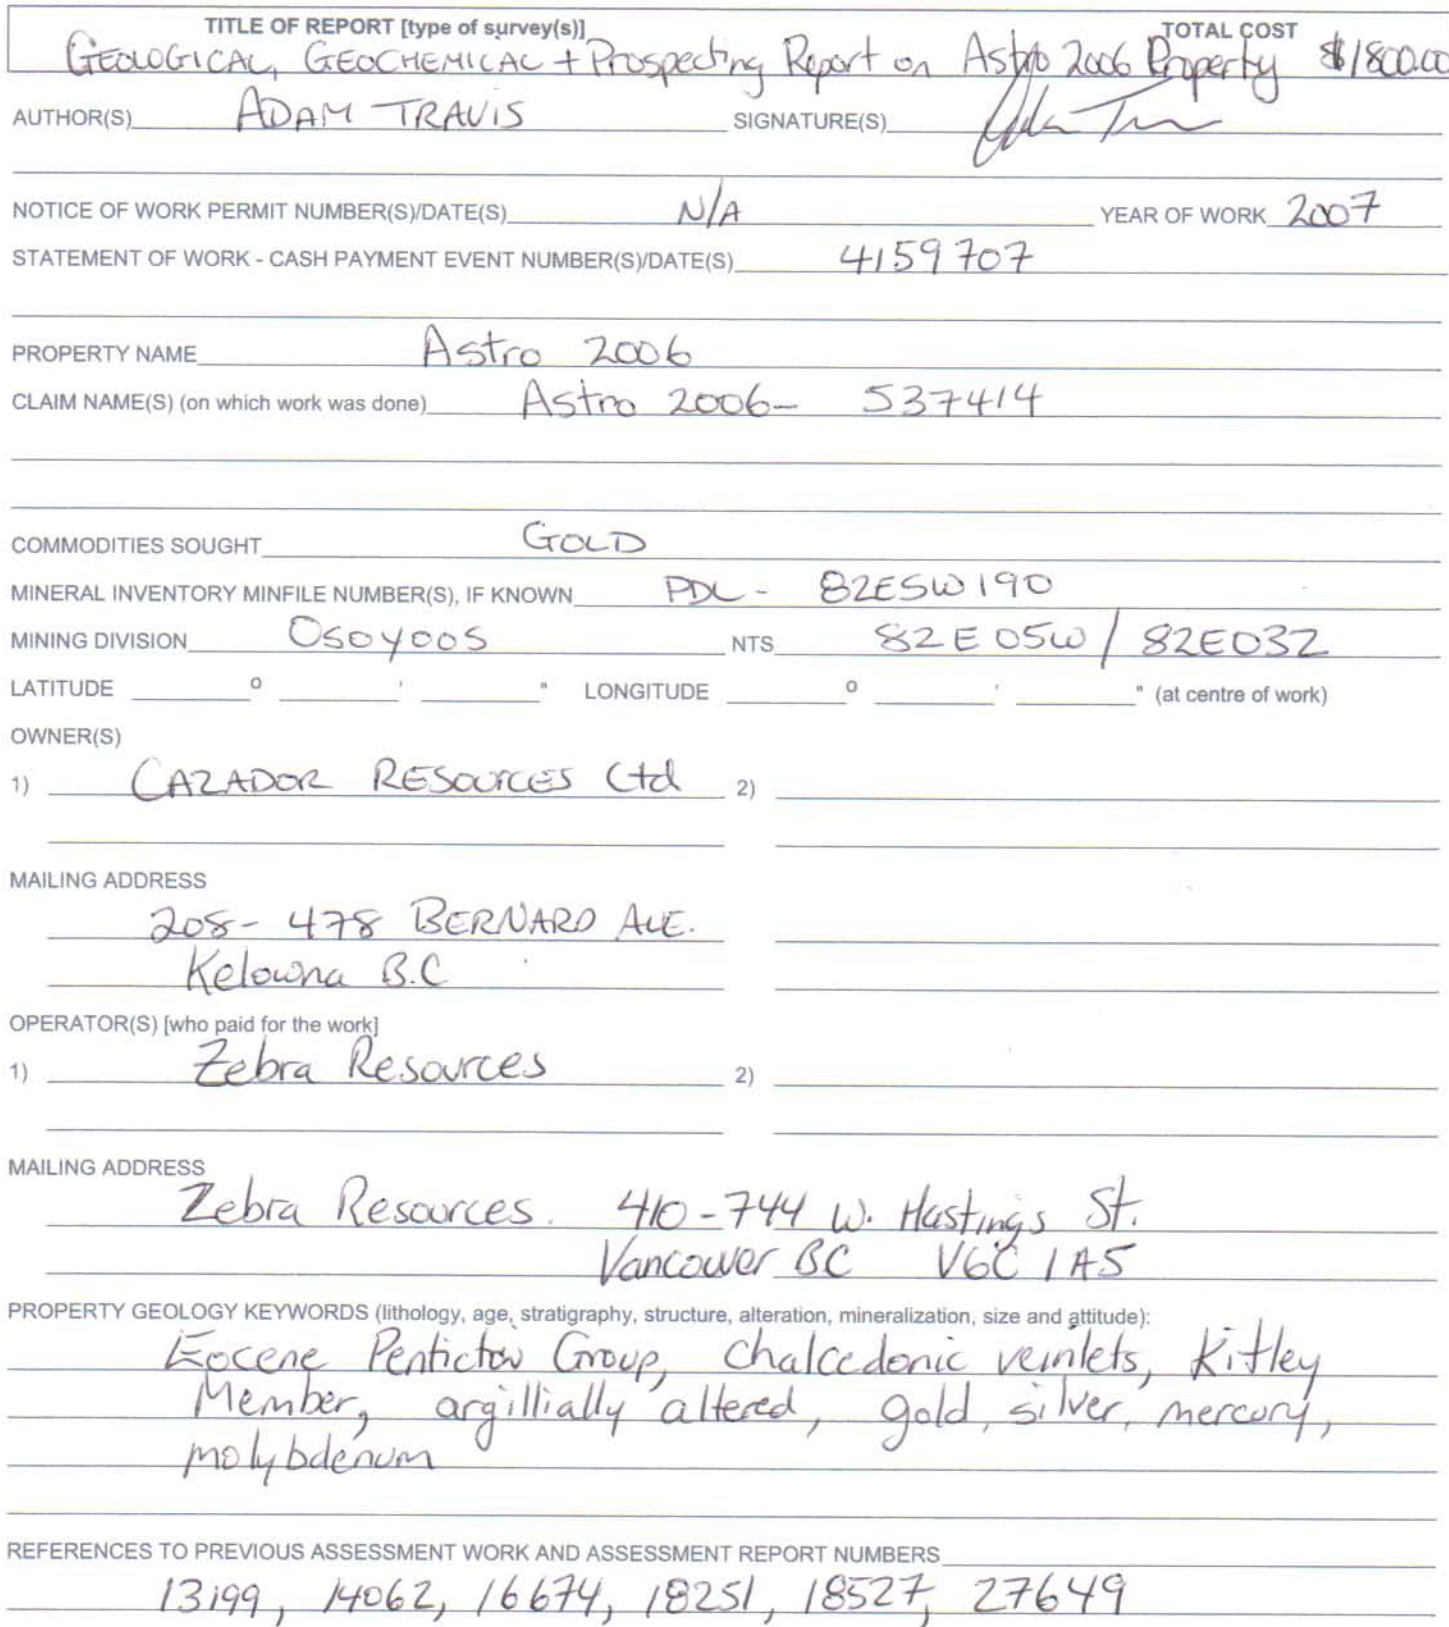 TITLE OF REPORT [type of survey(s)] TOTAL COST
GEOLOGICAL, GEOCHEMICAL + Prospecting Report on Astro 2006 Property $1800.00
AUTHOR(S) ADAM TRAVIS SIGNATURE(S)
NOTICE OF WORK PERMIT NUMBER(S)/DATE(S) N/A YEAR OF WORK 2007
STATEMENT OF WORK - CASH PAYMENT EVENT NUMBER(S)/DATE(S) 4159707
PROPERTY NAME Astro 2006
CLAIM NAME(S) (on which work was done) Astro 2006- 537414
COMMODITIES SOUGHT GOLD
MINERAL INVENTORY MINFILE NUMBER(S), IF KNOWN PDL - 82ESW190
MINING DIVISION Osoyoos NTS 82E 05W / 82E032
LATITUDE ° ' " LONGITUDE ° ' " (at centre of work)
OWNER(S)
1) CAZADOR RESOURCES Ltd 2)
MAILING ADDRESS
208- 478 BERNARD AVE.
Kelowna B.C
OPERATOR(S) [who paid for the work]
1) Zebra Resources 2)
MAILING ADDRESS
Zebra Resources. 410-744 W. Hastings St.
Vancouver BC V6C 1A5
PROPERTY GEOLOGY KEYWORDS (lithology, age, stratigraphy, structure, alteration, mineralization, size and attitude):
Eocene Penticton Group, Chalcedonic veinlets, Kitley
Member, argillially altered, gold, silver, mercury,
molybdenum
REFERENCES TO PREVIOUS ASSESSMENT WORK AND ASSESSMENT REPORT NUMBERS
13199, 14062, 16674, 18251, 18527, 27649